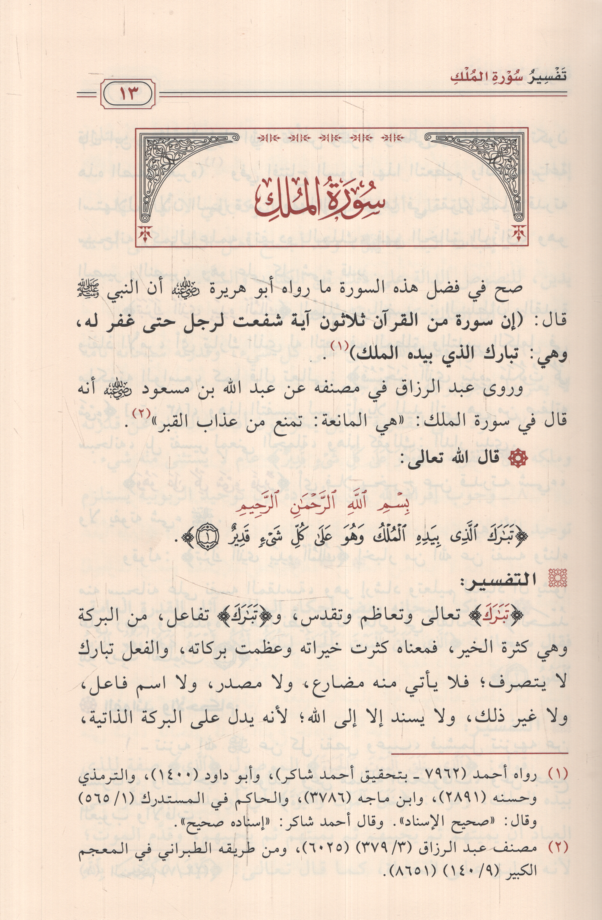 تَفْسِيرُ سُوْرَةِ المُلْكِ
١٣
سُورَةُ المُلكِ
صح في فضل هذه السورة ما رواه أبو هريرة رضي الله عنه أن النبي ﷺ
قال: (إن سورة من القرآن ثلاثون آية شفعت لرجل حتى غفر له،
وهي: تبارك الذي بيده الملك)(١).
وروى عبد الرزاق في مصنفه عن عبد الله بن مسعود رضي الله عنه أنه
قال في سورة الملك: «هي المانعة: تمنع من عذاب القبر»(٢).
قال الله تعالى:
بِسْمِ ٱللَّهِ ٱلرَّحْمَٰنِ ٱلرَّحِيمِ
﴿تَبَٰرَكَ ٱلَّذِى بِيَدِهِ ٱلْمُلْكُ وَهُوَ عَلَىٰ كُلِّ شَىْءٍ قَدِيرٌ ١﴾.
التفسير:
﴿تَبَٰرَكَ﴾ تعالى وتعاظم وتقدس، و﴿تَبَٰرَكَ﴾ تفاعل، من البركة
وهي كثرة الخير، فمعناه كثرت خيراته وعظمت بركاته، والفعل تبارك
لا يتصرف؛ فلا يأتي منه مضارع، ولا مصدر، ولا اسم فاعل،
ولا غير ذلك، ولا يسند إلا إلى الله؛ لأنه يدل على البركة الذاتية،
(١) رواه أحمد (٧٩٦٢ ـ بتحقيق أحمد شاكر)، وأبو داود (١٤٠٠)، والترمذي
وحسنه (٢٨٩١)، وابن ماجه (٣٧٨٦)، والحاكم في المستدرك (٥٦٥/١)
وقال: «صحيح الإسناد». وقال أحمد شاكر: «إسناده صحيح».
(٢) مصنف عبد الرزاق (٣٧٩/٣) (٦٠٢٥)، ومن طريقه الطبراني في المعجم
الكبير (١٤٠/٩) (٨٦٥١).